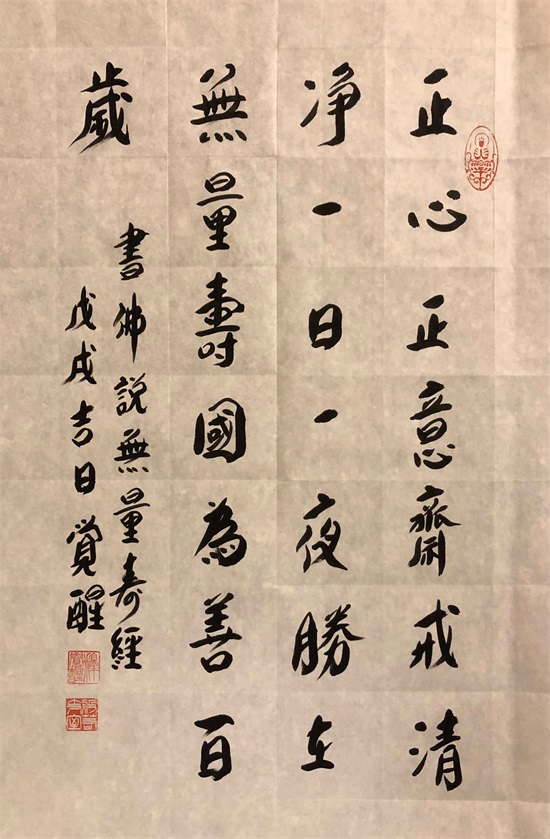 正心正意齋戒清
净一日一夜勝在
無量壽國為善百
歲
書佛説無量寿經
戊戌吉日覺醒